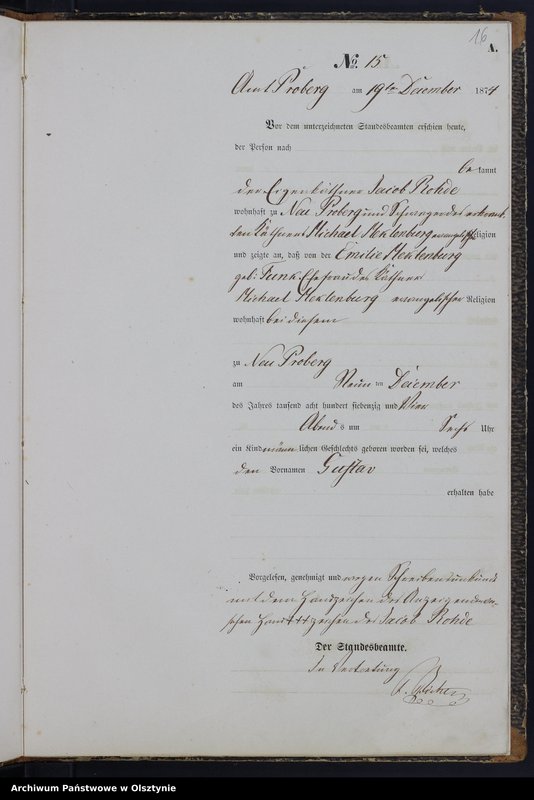 16
A.
No. 15
Amt Proberg am 19ten Dezember 1874
Vor dem unterzeichneten Standesbeamten erschien heute,
der Person nach
bekannt
der Eigenkäthner Jacob Rohde
wohnhaft zu Neu Proberg und Schwager des erkrank
ten Käthners Michael Meklenburg evangelischer Religion
und zeigte an, daß von der Emilie Meklenburg
geb: Funk Ehefrau des Käthners
Michael Meklenburg evangelischer Religion
wohnhaft bei diesem
zu Neu Proberg
am Neun ten Dezember
des Jahres tausend acht hundert siebenzig und Vier
Abends um Sechs Uhr
ein Kind männlichen Geschlechts geboren worden sei, welches
den Vornamen Gustav
erhalten habe
Vorgelesen, genehmigt und wegen Schreibensunkunde
mit dem Handzeichen des Anzeigenden
Handzeichen des Jacob Rohde
Der Standesbeamte.
In Vertretung
Archiwum Państwowe w Olsztynie